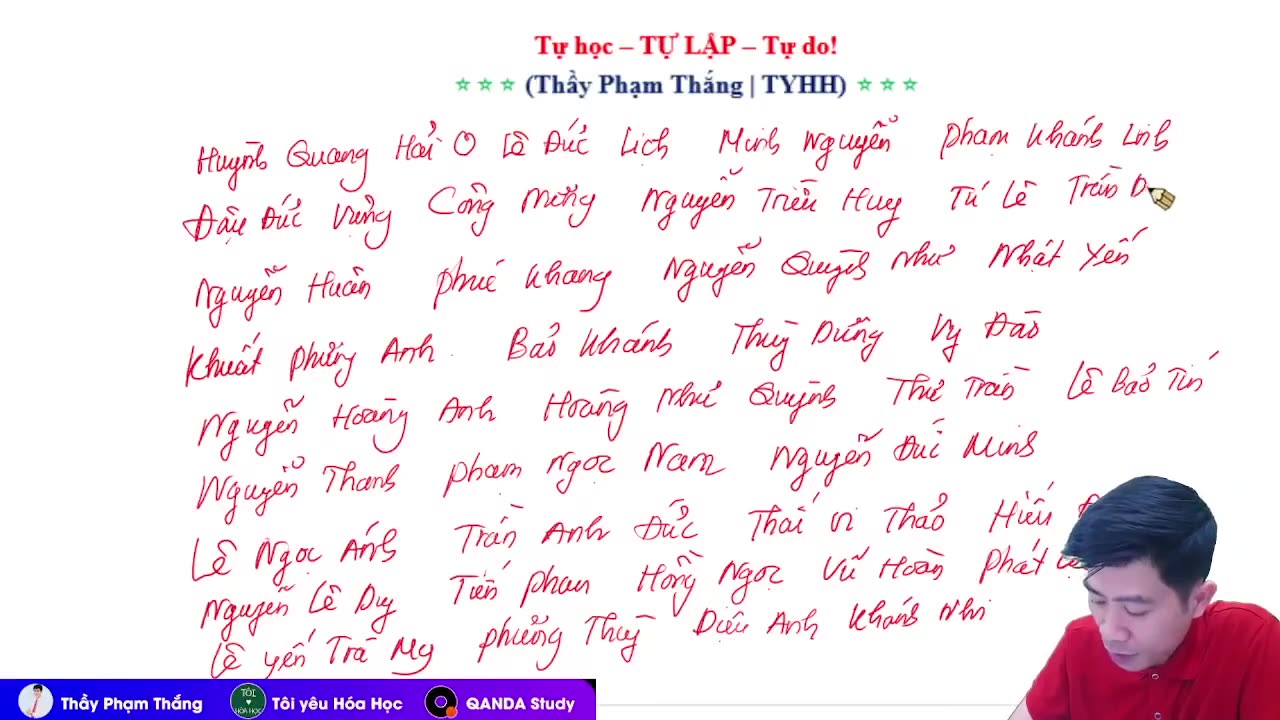 Tự học – TỰ LẬP – Tự do!
☆ ☆ ☆ (Thầy Phạm Thắng | TYHH) ☆ ☆ ☆
Huỳnh Quang Hải Lê Đức Lịch Minh Nguyễn Phạm Khánh Linh
Đậu Đức Vượng Công Mường Nguyễn Triều Huy Tú Lê Trần D
Nguyễn Huân Phúc Khang Nguyễn Quỳnh Như Nhật Yến
Khuất Phương Anh Bảo Khánh Thuỳ Dương Vy Đào
Nguyễn Hoàng Anh Hoàng Như Quỳnh Thư Trần Lê Bảo Tín
Nguyễn Thanh Phạm Ngọc Nam Nguyễn Đức Minh
Lê Ngọc Ánh Trần Anh Đức Thái Vi Thảo Hiếu
Nguyễn Lê Duy Tiến Phan Hồng Ngọc Vũ Hoàn Phát
Lê Yến Trà My Phương Thuỳ Diệu Anh Khánh Nhi
Thầy Phạm Thắng Tôi yêu Hóa Học QANDA Study
TÔI
HÓA HỌC